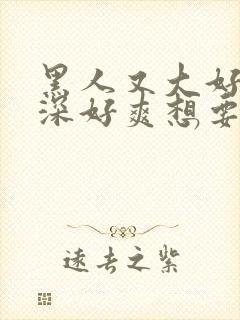 黑人又大好
深好爽想要
远去之紫